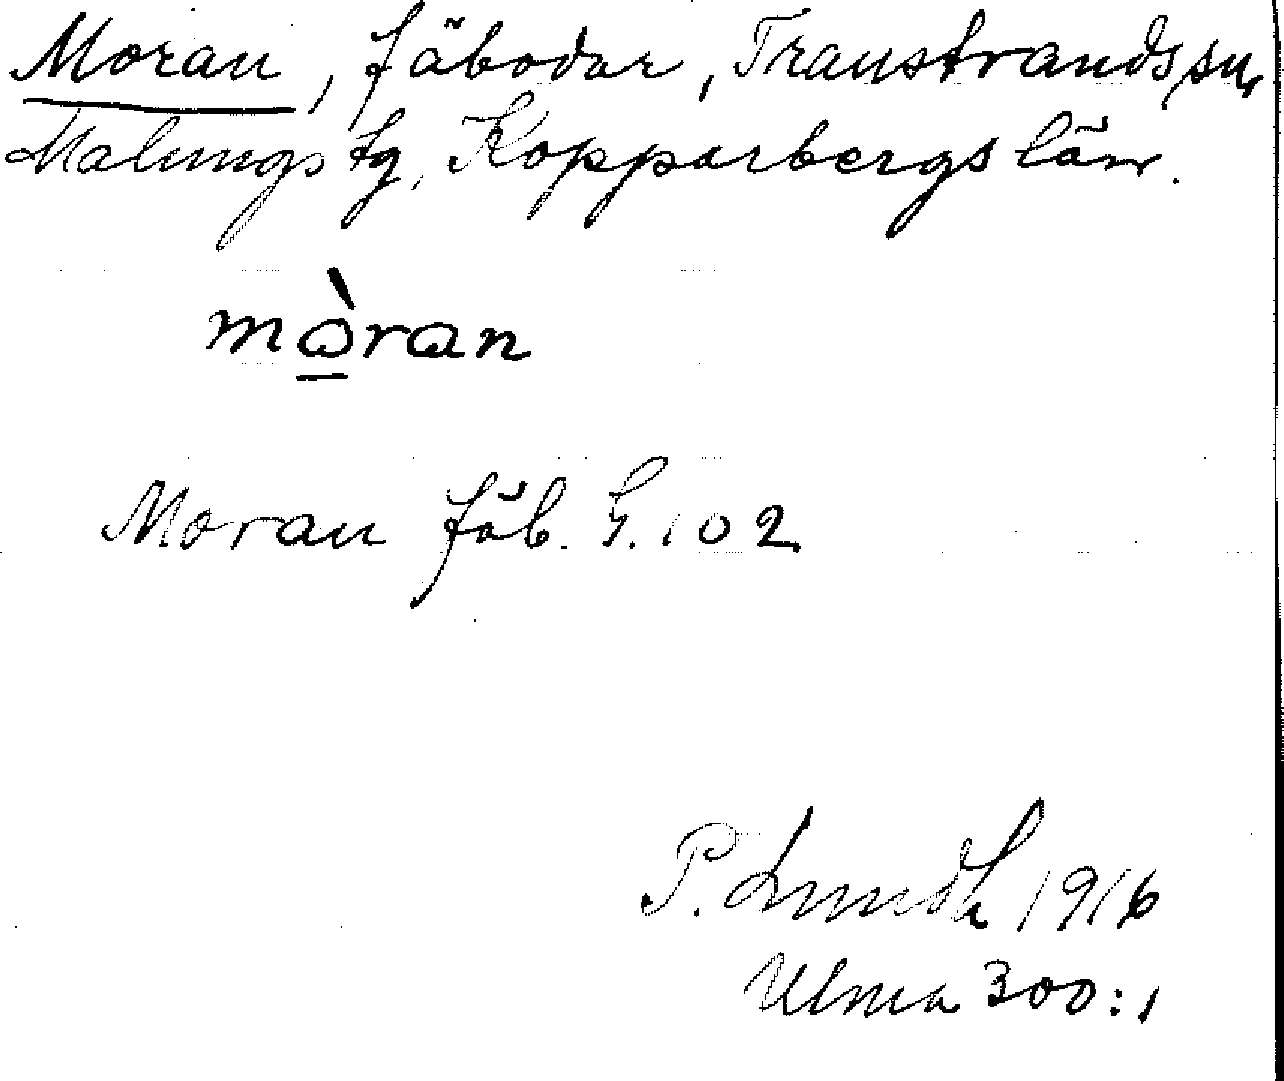 Moran, fäbodar, Transtrands sn,
Malungs tg, Kopparbergs län.
mòran
Moran fäb. G. 102
P. Lundh 1916
Ulma 300:1